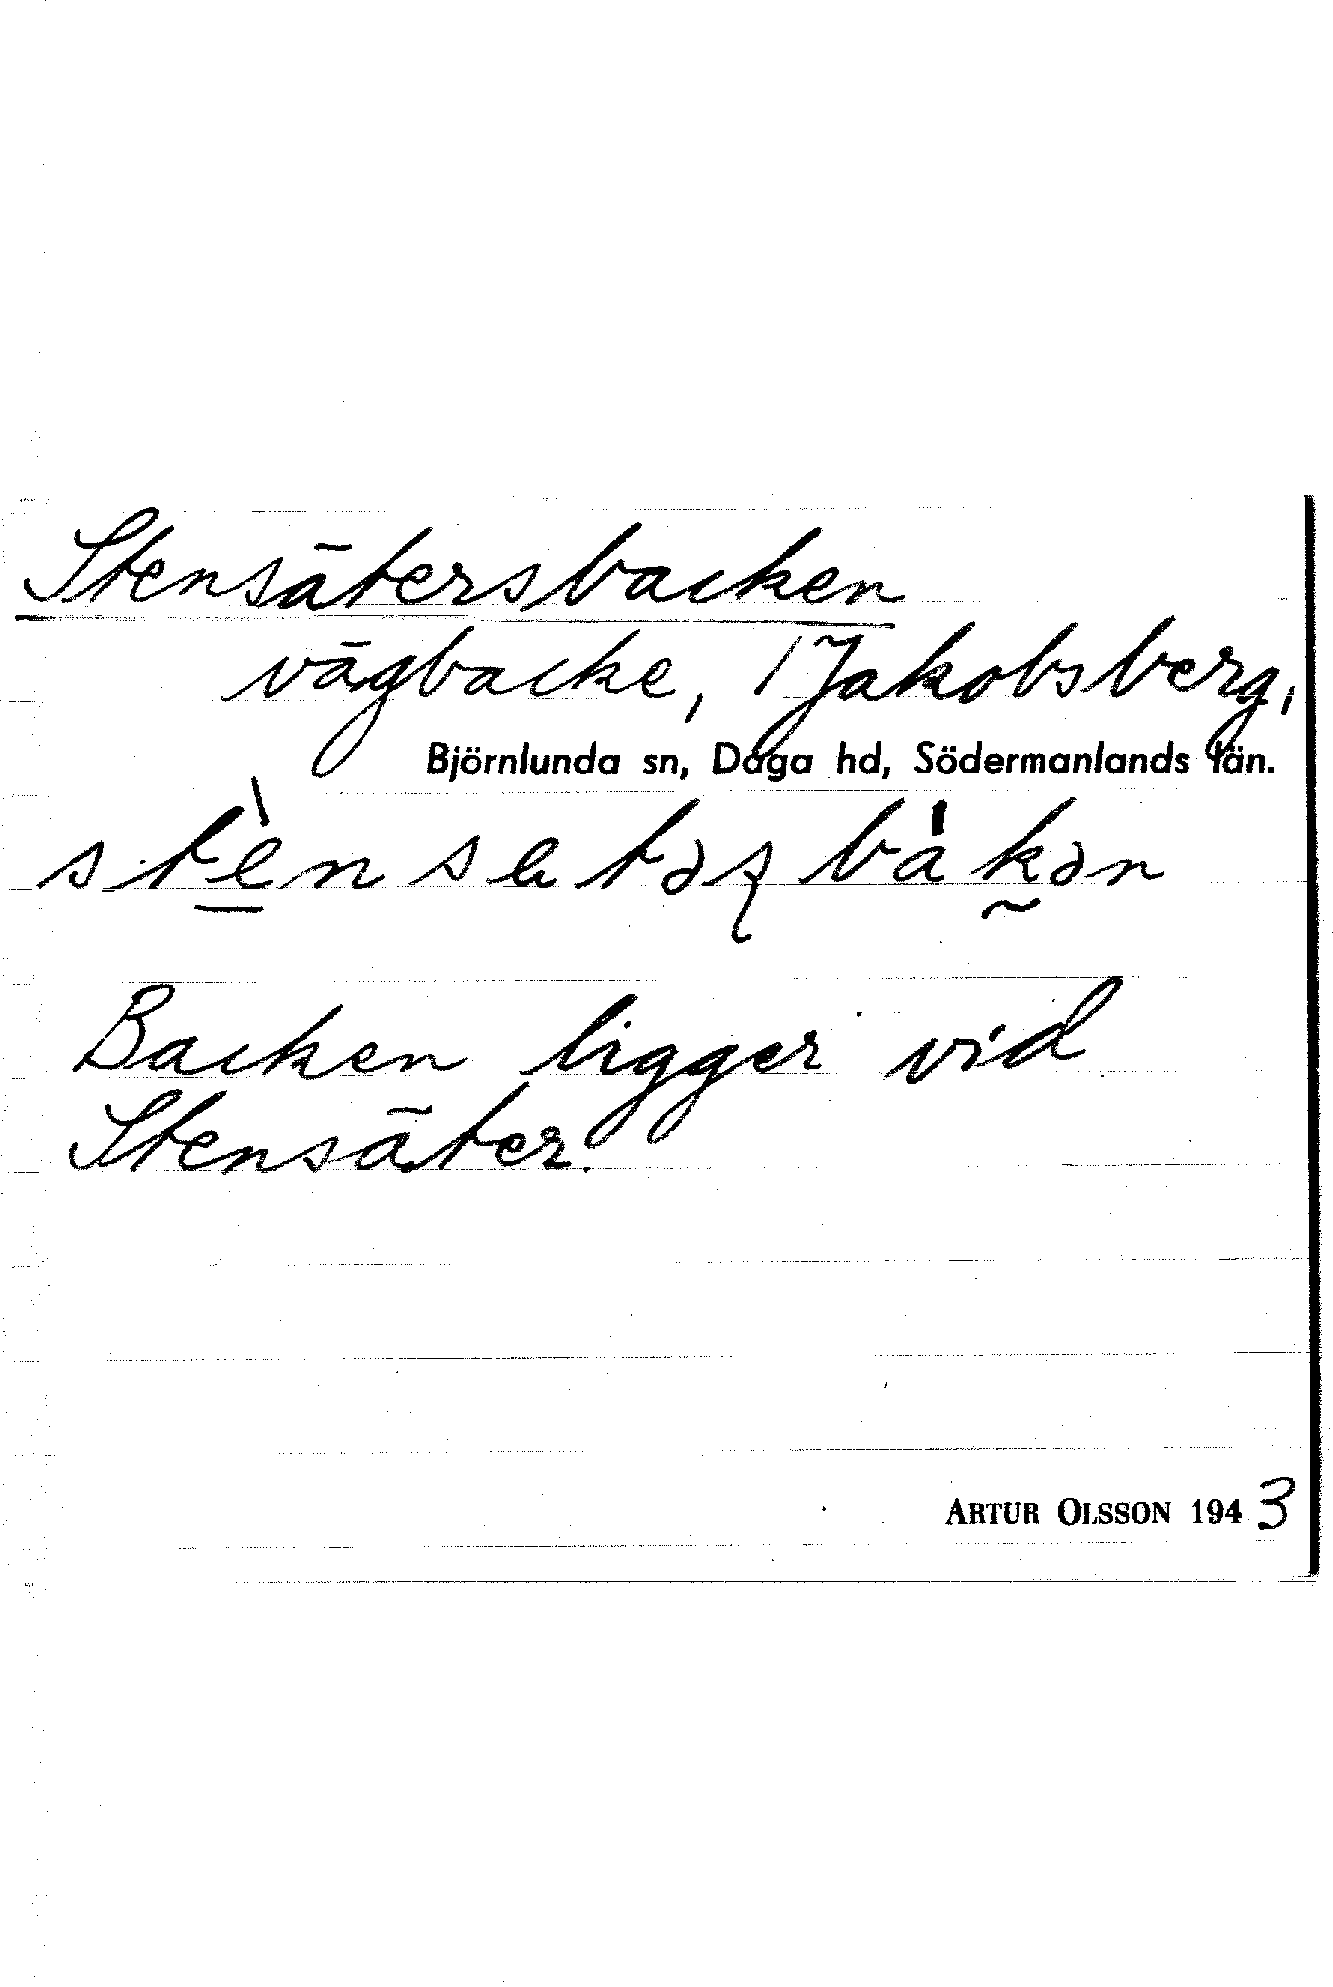 Stensätersbacken
vägbacke, 1 Jakobsberg,
Björnlunda sn, Daga hd, Södermanlands län.
Backen ligger vid
Stensäter.
ARTUR OLSSON 1943